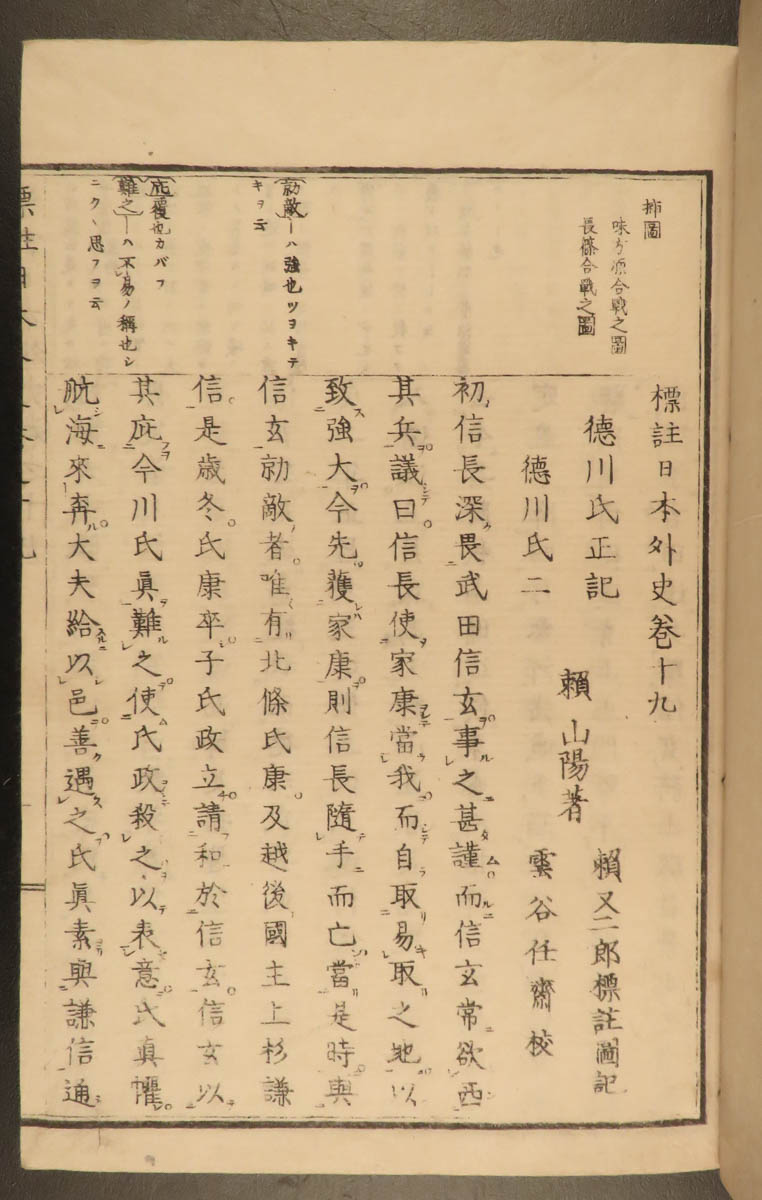 標註日本外史巻十九
德川氏正記
賴山陽著
賴又二郎標註圖記
德川氏二
雲谷任齋校
初信長深畏武田信玄事之甚謹而信玄常欲西
其兵議曰信長使家康當我而自取易取之地以
致強大今先獲家康則信長隨手而亡當是時與
信玄勍敵者唯有北條氏康及越後國主上杉謙
信是歲冬氏康卒子氏政立請和於信玄信玄以
其庇今川氏眞難之使氏政殺之以表意氏眞懼
航海來奔大夫給以邑善遇之氏眞素與謙信通
揷圖
味方原合戰之圖
長篠合戰之圖
勍敵ーハ強也ツヨキテ
キヲ云
庇覆也カバフ
難之ーハ不易ノ稱也シ
ニクヽ思フヲ云